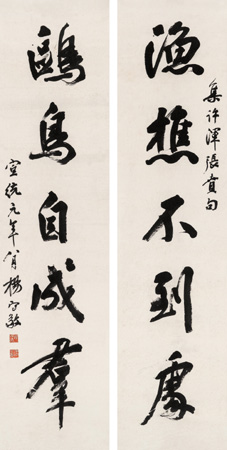 集許渾張賁句
漁樵不到處
鷗鳥自成羣
宣統元年八月楊守敬